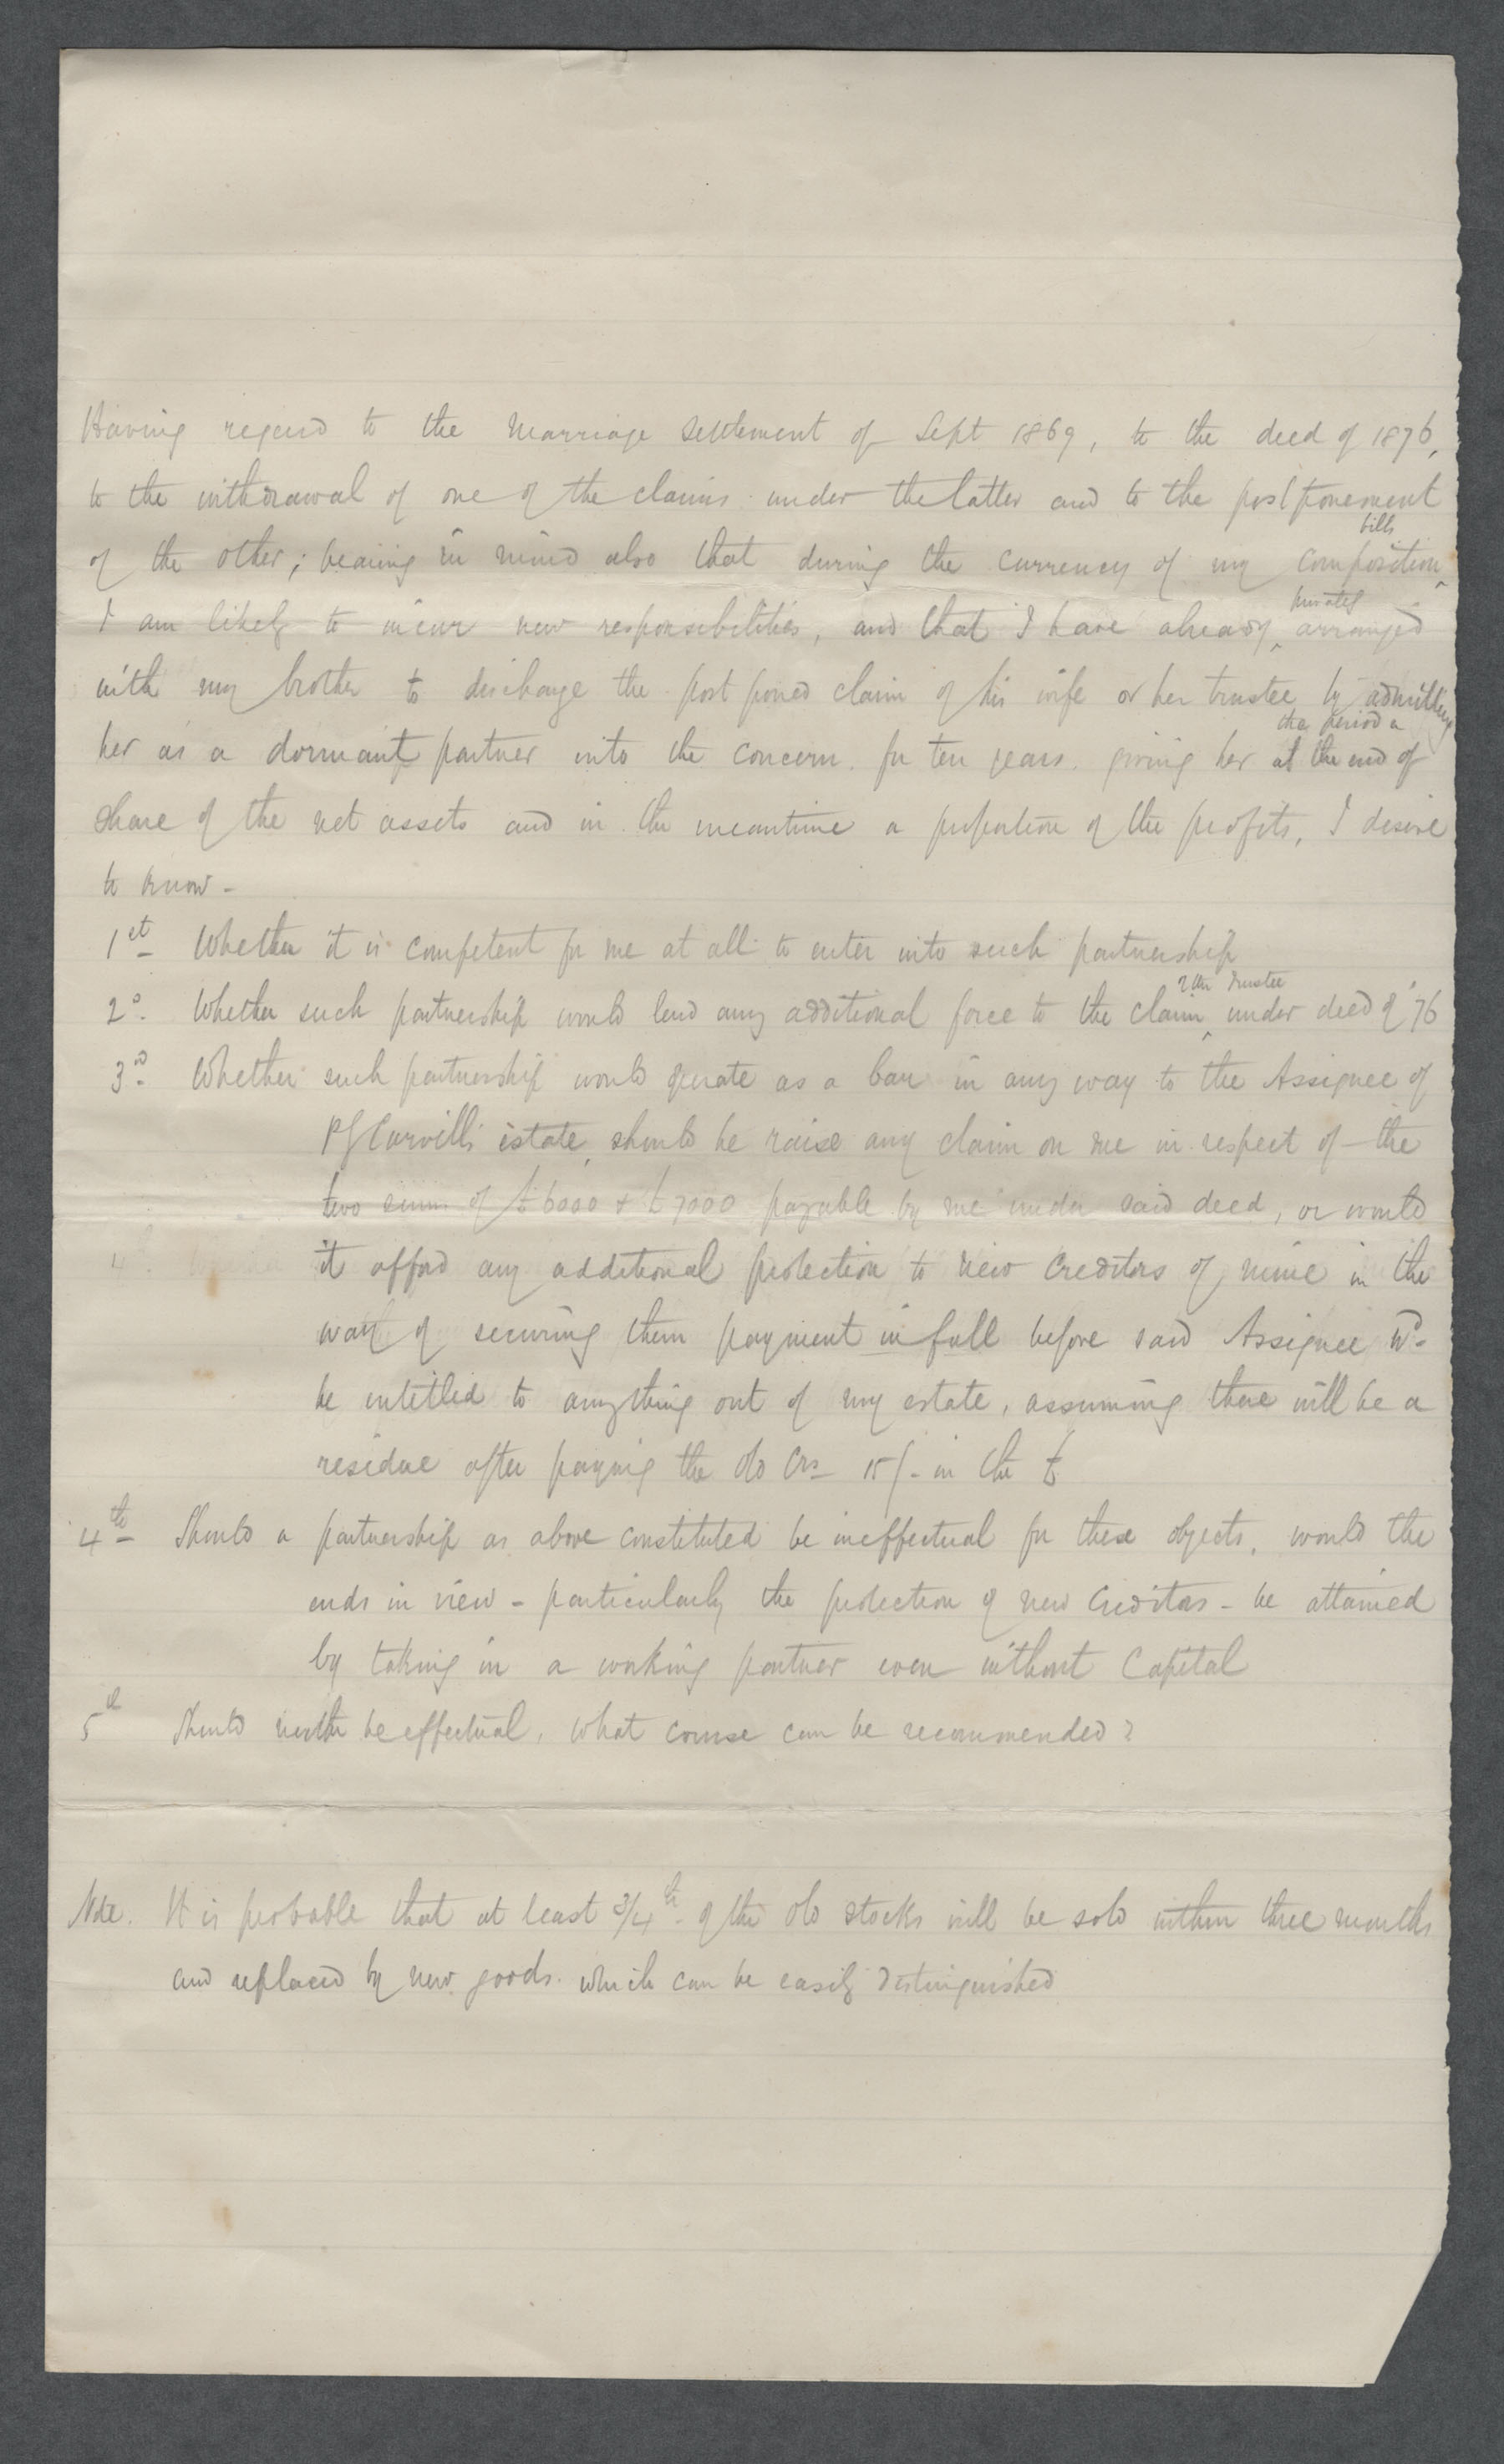 Having regard to the Marriage Settlement of Sept 1869, to the deed of 1876,
to the withdrawal of one of the claims under the latter and to the postponement
of the other; bearing in mind also that during the currency of my composition bills
I am likely to incur new responsibilities, and that I have already privately arranged
with my brother to discharge the postponed claim of his wife or her trustee by admitting
her as a dormant partner into the concern for ten years. giving her at the end of the period a
share of the net assets and in the meantime a proportion of the profits, I desire
to know -
1st Whether it is competent for me at all to enter into such partnership
2d Whether such partnership would lend any additional force to the claim of her Trustee under deed of '76
3rd Whether such partnership would operate as a bar in any way to the Assignee of
P J Carvill's estate, should he raise any claim on me in respect of the
two sums of £6000 & £7000 payable by me under said deed, or would
it afford any additional protection to new Creditors of mine in the
way of securing them payment in full before said Assignee wd
be entitled to anything out of my estate, assuming there will be a
residue after paying the old Crs 15/- in the £
4th Should a partnership as above constituted be ineffectual for these objects, would the
ends in view - particularly the protection of new Creditors - be attained
by taking in a working partner even without Capital
5th Should neither be effectual, what course can be recommended?
Note. It is probable that at least 3/4th of the old stocks will be sold within three months
and replaced by new goods. which can be easily distinguished